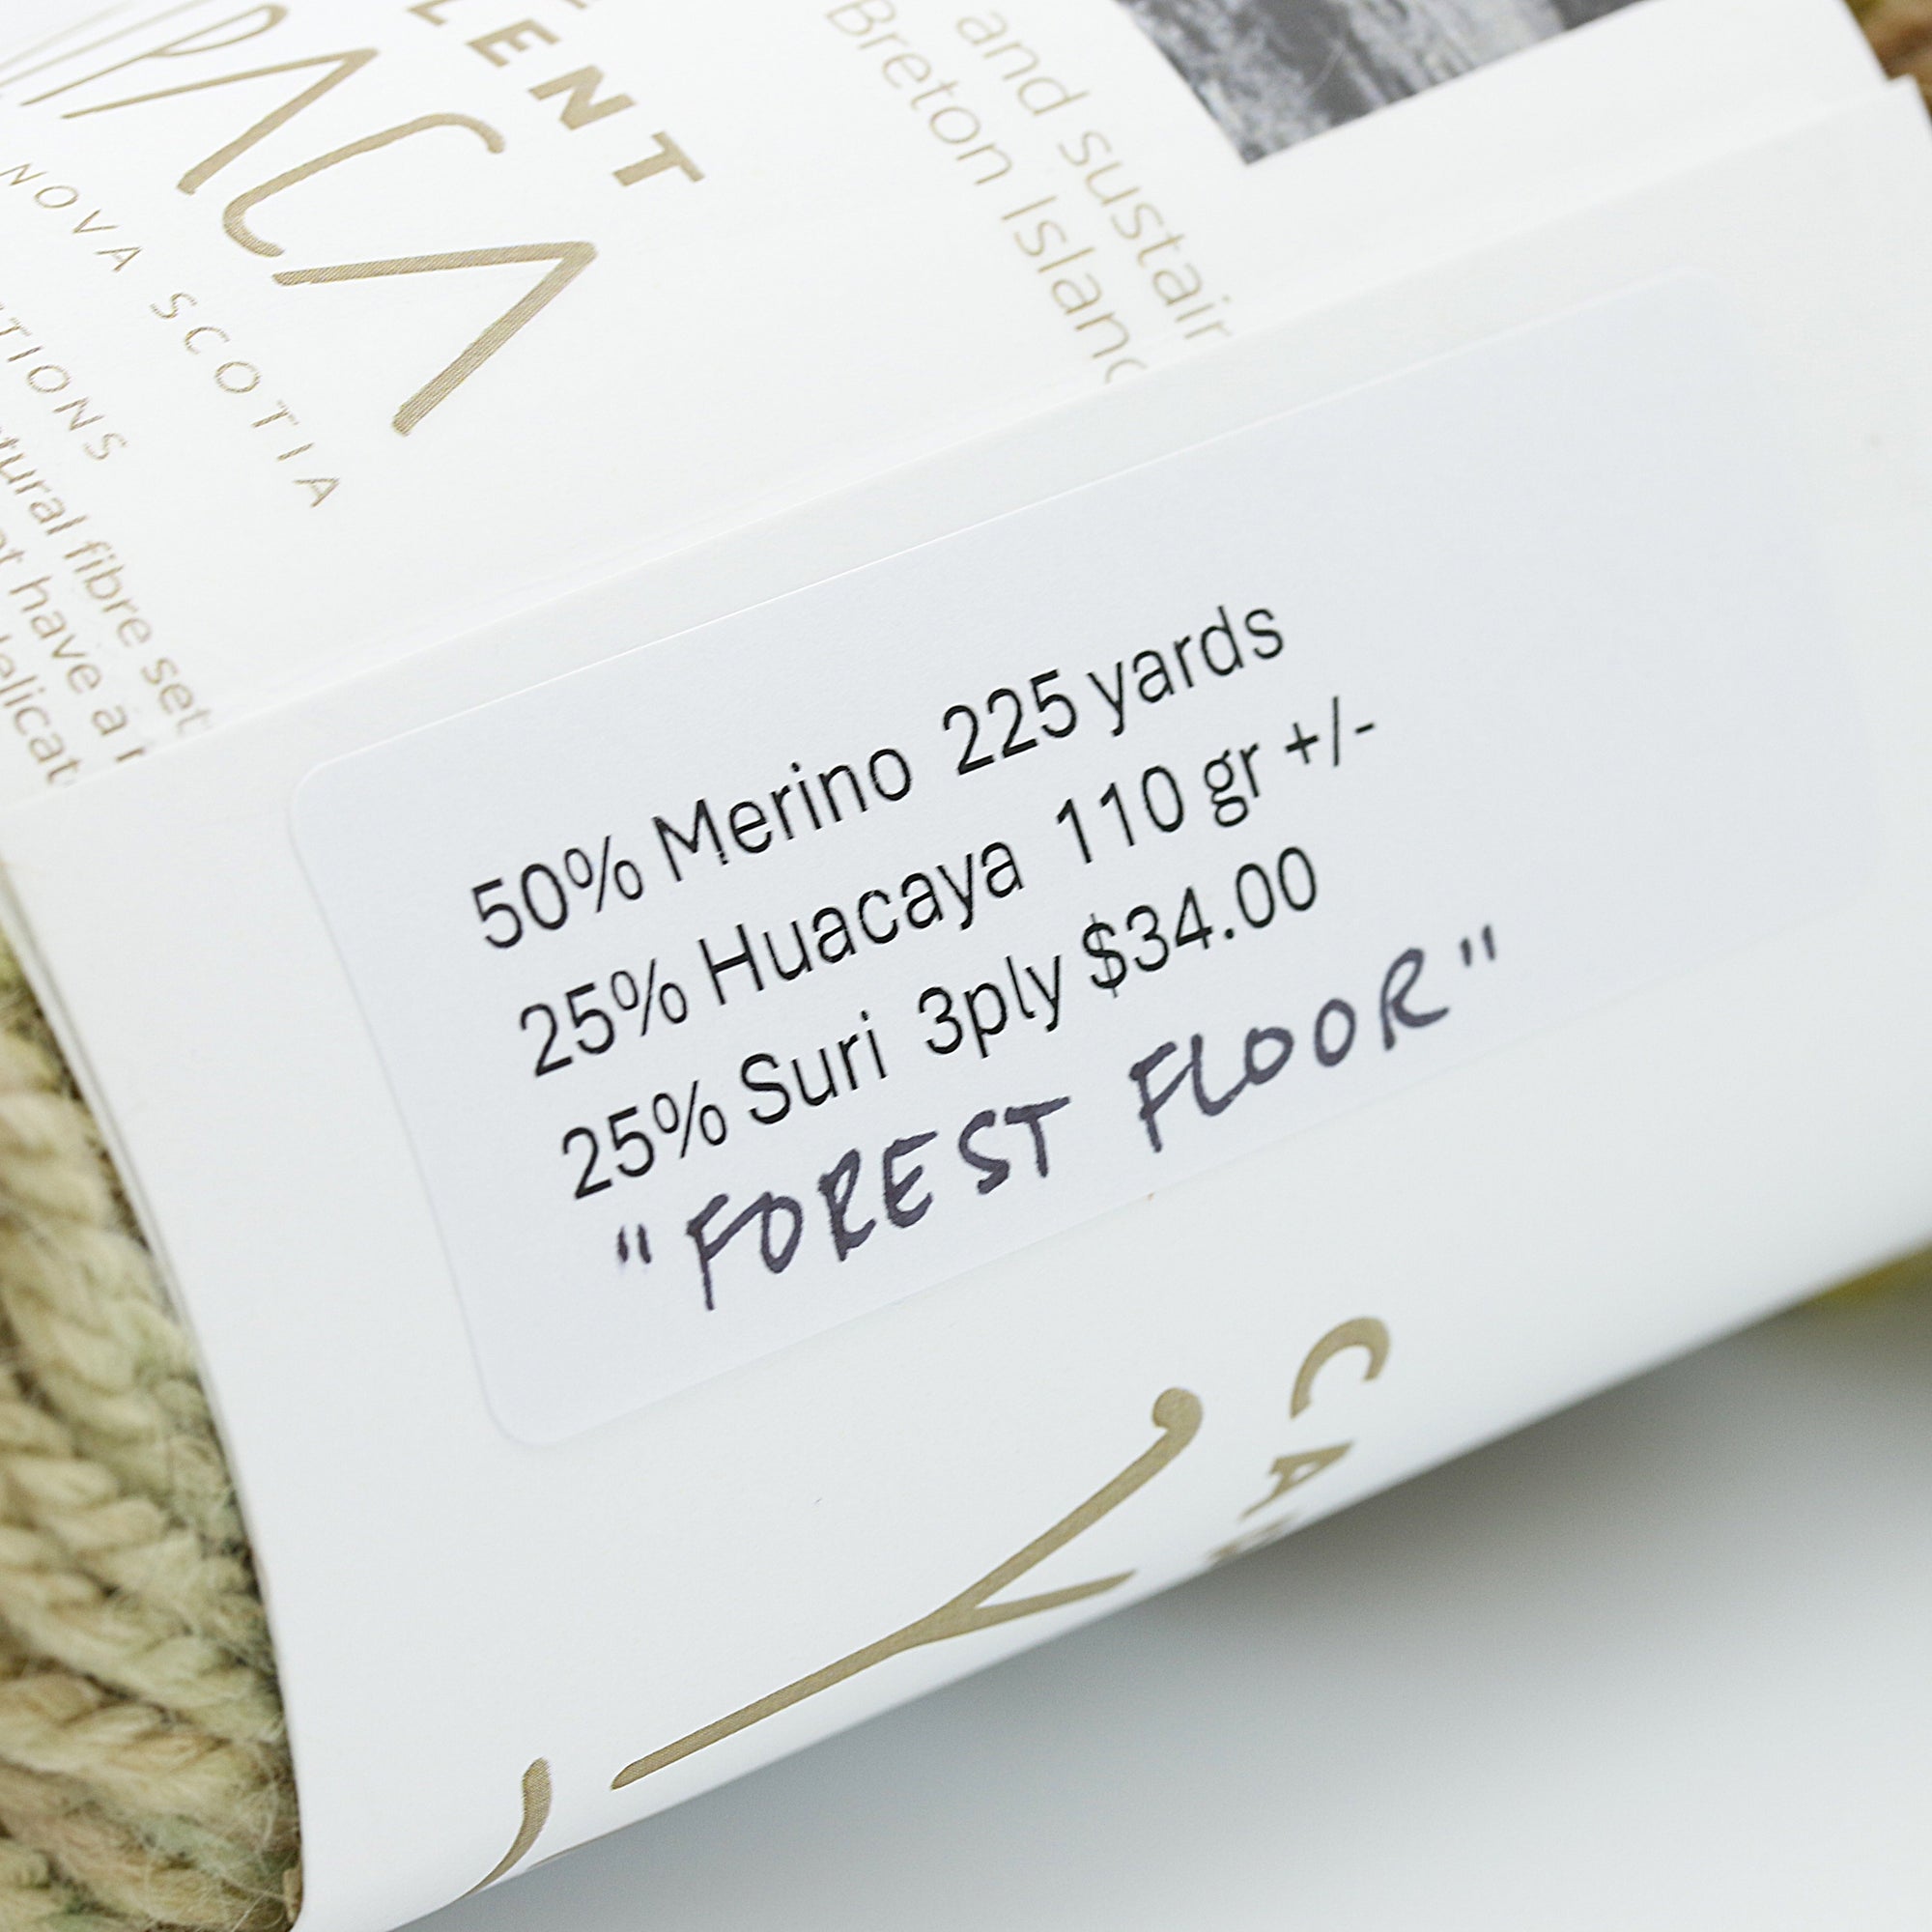 PACA
LENT
NOVA SCOTIA
TIONS
tural fibre set
have a
and sustain
Breton Island
50% Merino 225 yards
25% Huacaya 110 gr +/-
25% Suri 3ply $34.00
"FOREST FLOOR"
CA